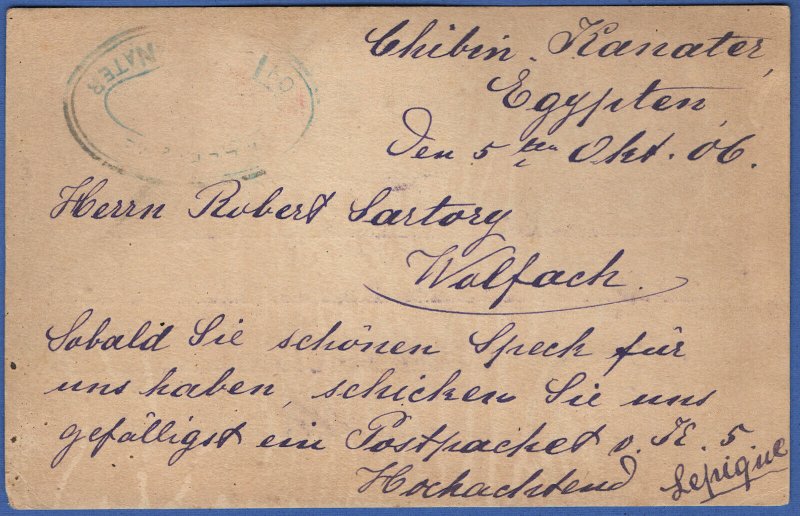 Chibin-Kanater,
Egypten,
Den 5ten Okt. 06.
Herrn Robert Sartory
Wolfach.
Sobald Sie schönen Speck für
uns haben, schicken Sie uns
gefälligst ein Postpacket v. K. 5
Hochachtend Lepique
NATER